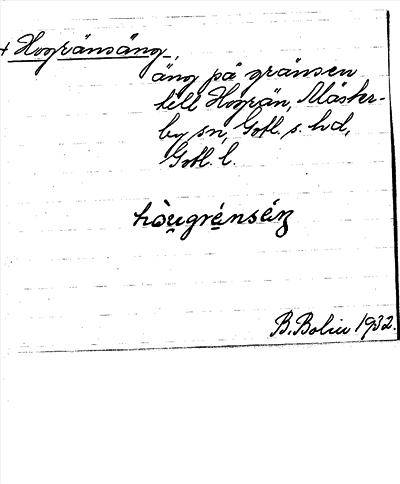 + Hogränsäng,
äng på gränsen
till Hogrän, Mäster-
by sn, Gotl. s. hd,
Gotl. l.
hòu̯grénséŋ
B. Bolin 1932.